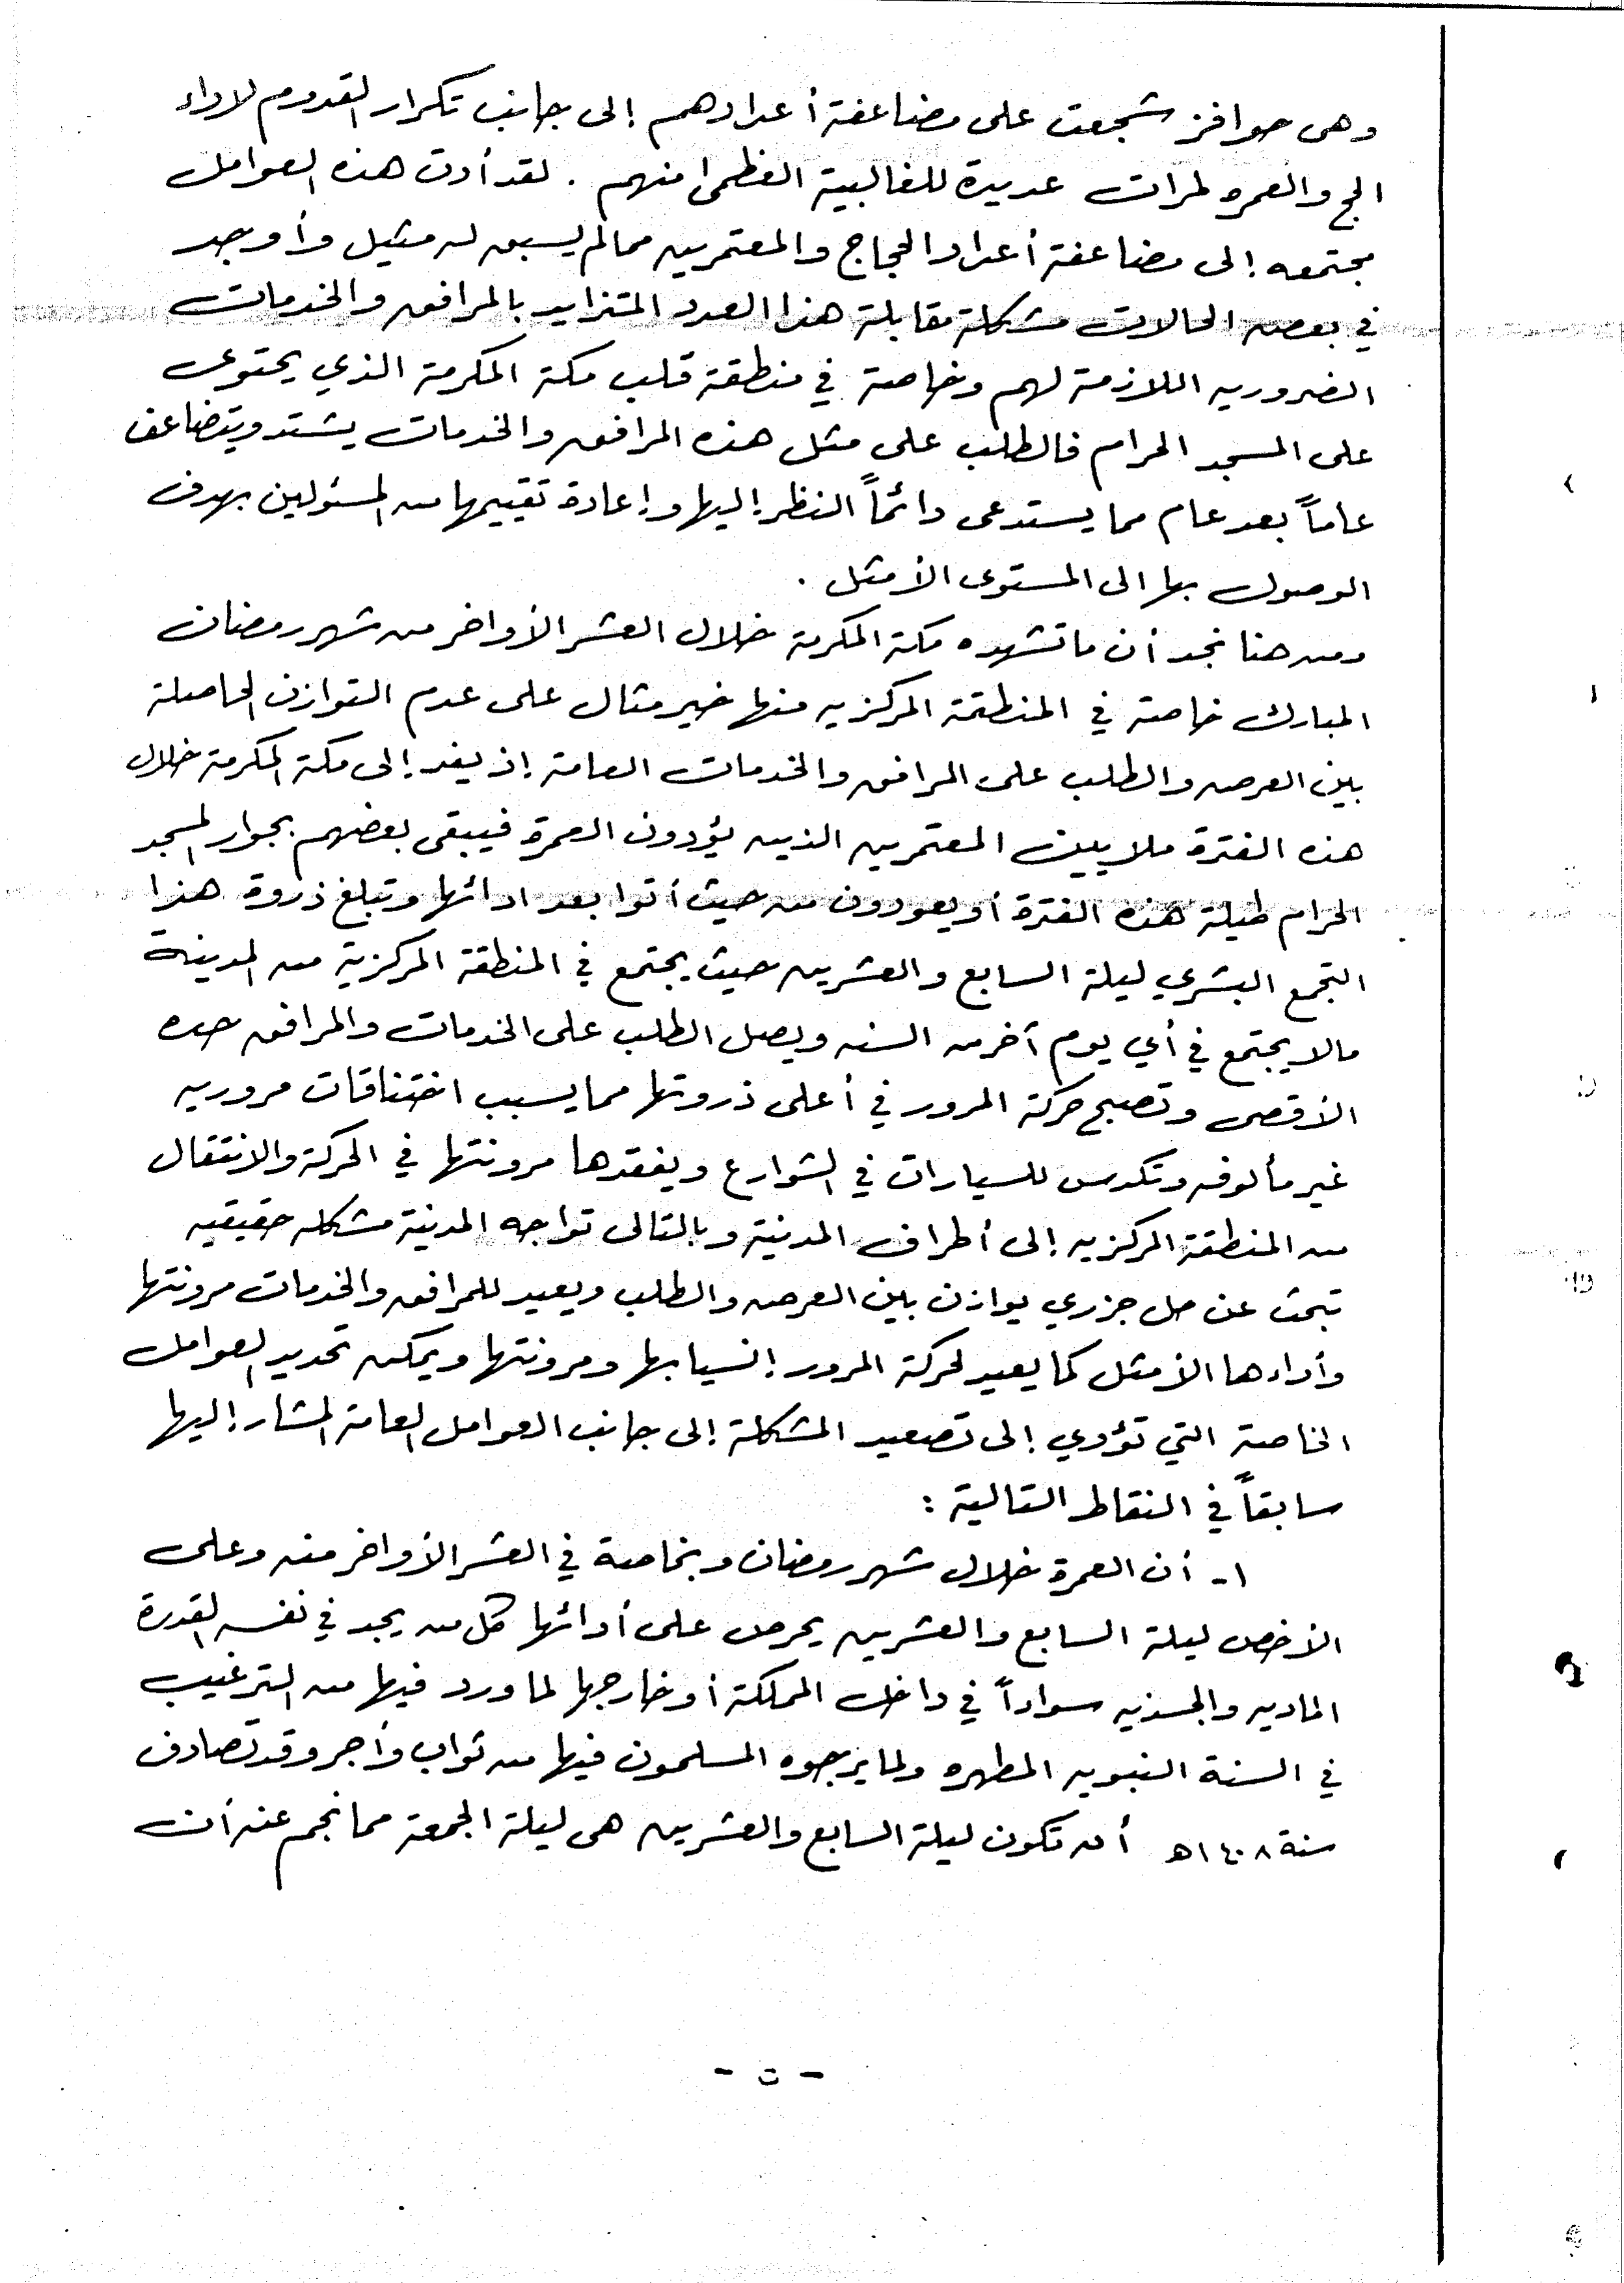 وهى حوافز شجعت على مضاعفة أعدادهم إلى جانب تكرار القدوم لاداء
الحج والعمره لمرات عديدة للغالبية العظمى منهم . لقد أدت هذه العوامل
مجتمعه إلى مضاعفة أعداد الحجاج والمعتمرين مما لم يسبق له مثيل وأوجد
في بعض الحالات مشكلة مقابلة هذا العدد المتزايد بالمرافق والخدمات
الضروريه اللازمة لهم وخاصة في منطقة قلب مكة المكرمة الذي يحتوى
على المسجد الحرام فالطلب على مثل هذه المرافق والخدمات يشتد ويتضاعف
عاماً بعد عام مما يستدعى دائماً النظر إليها وإعادة تقييمها من المسئولين بهدف
الوصول بها الى المستوى الأمثل .
ومن هنا نجد أن ما تشهده مكة المكرمة خلال العشر الأواخر من شهر رمضان
المبارك خاصة في المنطقة المركزيه منها خير مثال على عدم التوازن الحاصلة
بين العرض والطلب على المرافق والخدمات العامة إذ يفد إلى مكة المكرمة خلال
هذه الفترة ملايين المعتمرين الذين يؤدون العمرة فيبقى بعضهم بجوار المسجد
الحرام طيلة هذه الفترة أو يعودون من حيث أتوا بعد ادائها وتبلغ ذروة هذا
التجمع البشري ليلة السابع والعشرين حيث يجتمع في المنطقة المركزية من المدينة
مالا يجتمع في أي يوم آخر من السنه ويصل الطلب على الخدمات والمرافق حده
الأقصى وتصبح حركة المرور في أعلى ذروتها مما يسبب اختناقات مروريه
غير مألوفه وتكدس للسيارات في الشوارع ويفقدها مرونتها في الحركة والانتقال
من المنطقة المركزيه إلى أطراف المدينة وبالتالى تواجه المدينة مشكله حقيقيه
تبحث عن حل جزري يوازن بين العرض والطلب ويعيد للمرافق والخدمات مرونتها
وأداءها الأمثل كما يعيد لحركة المرور إنسيابها ومرونتها ويمكن تحديد العوامل
الخاصة التي تؤدي إلى تصعيد المشكلة إلى جانب العوامل العامة المشار إليها
سابقاً في النقاط التالية :
١- أن العمرة خلال شهر رمضان وبخاصة في العشر الأواخر منه وعلى
الأخص ليلة السابع والعشرين يحرص على أدائها كل من يجد في نفسه القدرة
الماديه والجسديه سواداً في داخل المملكة أو خارجها لما ورد فيها من الترغيب
في السنة النبويه المطهره ولما يرجوه المسلمون فيها من ثواب وأجر وقد تصادف
سنة ١٤٠٨هـ أن تكون ليلة السابع والعشرين هى ليلة الجمعة مما نجم عنه أن
- ت -